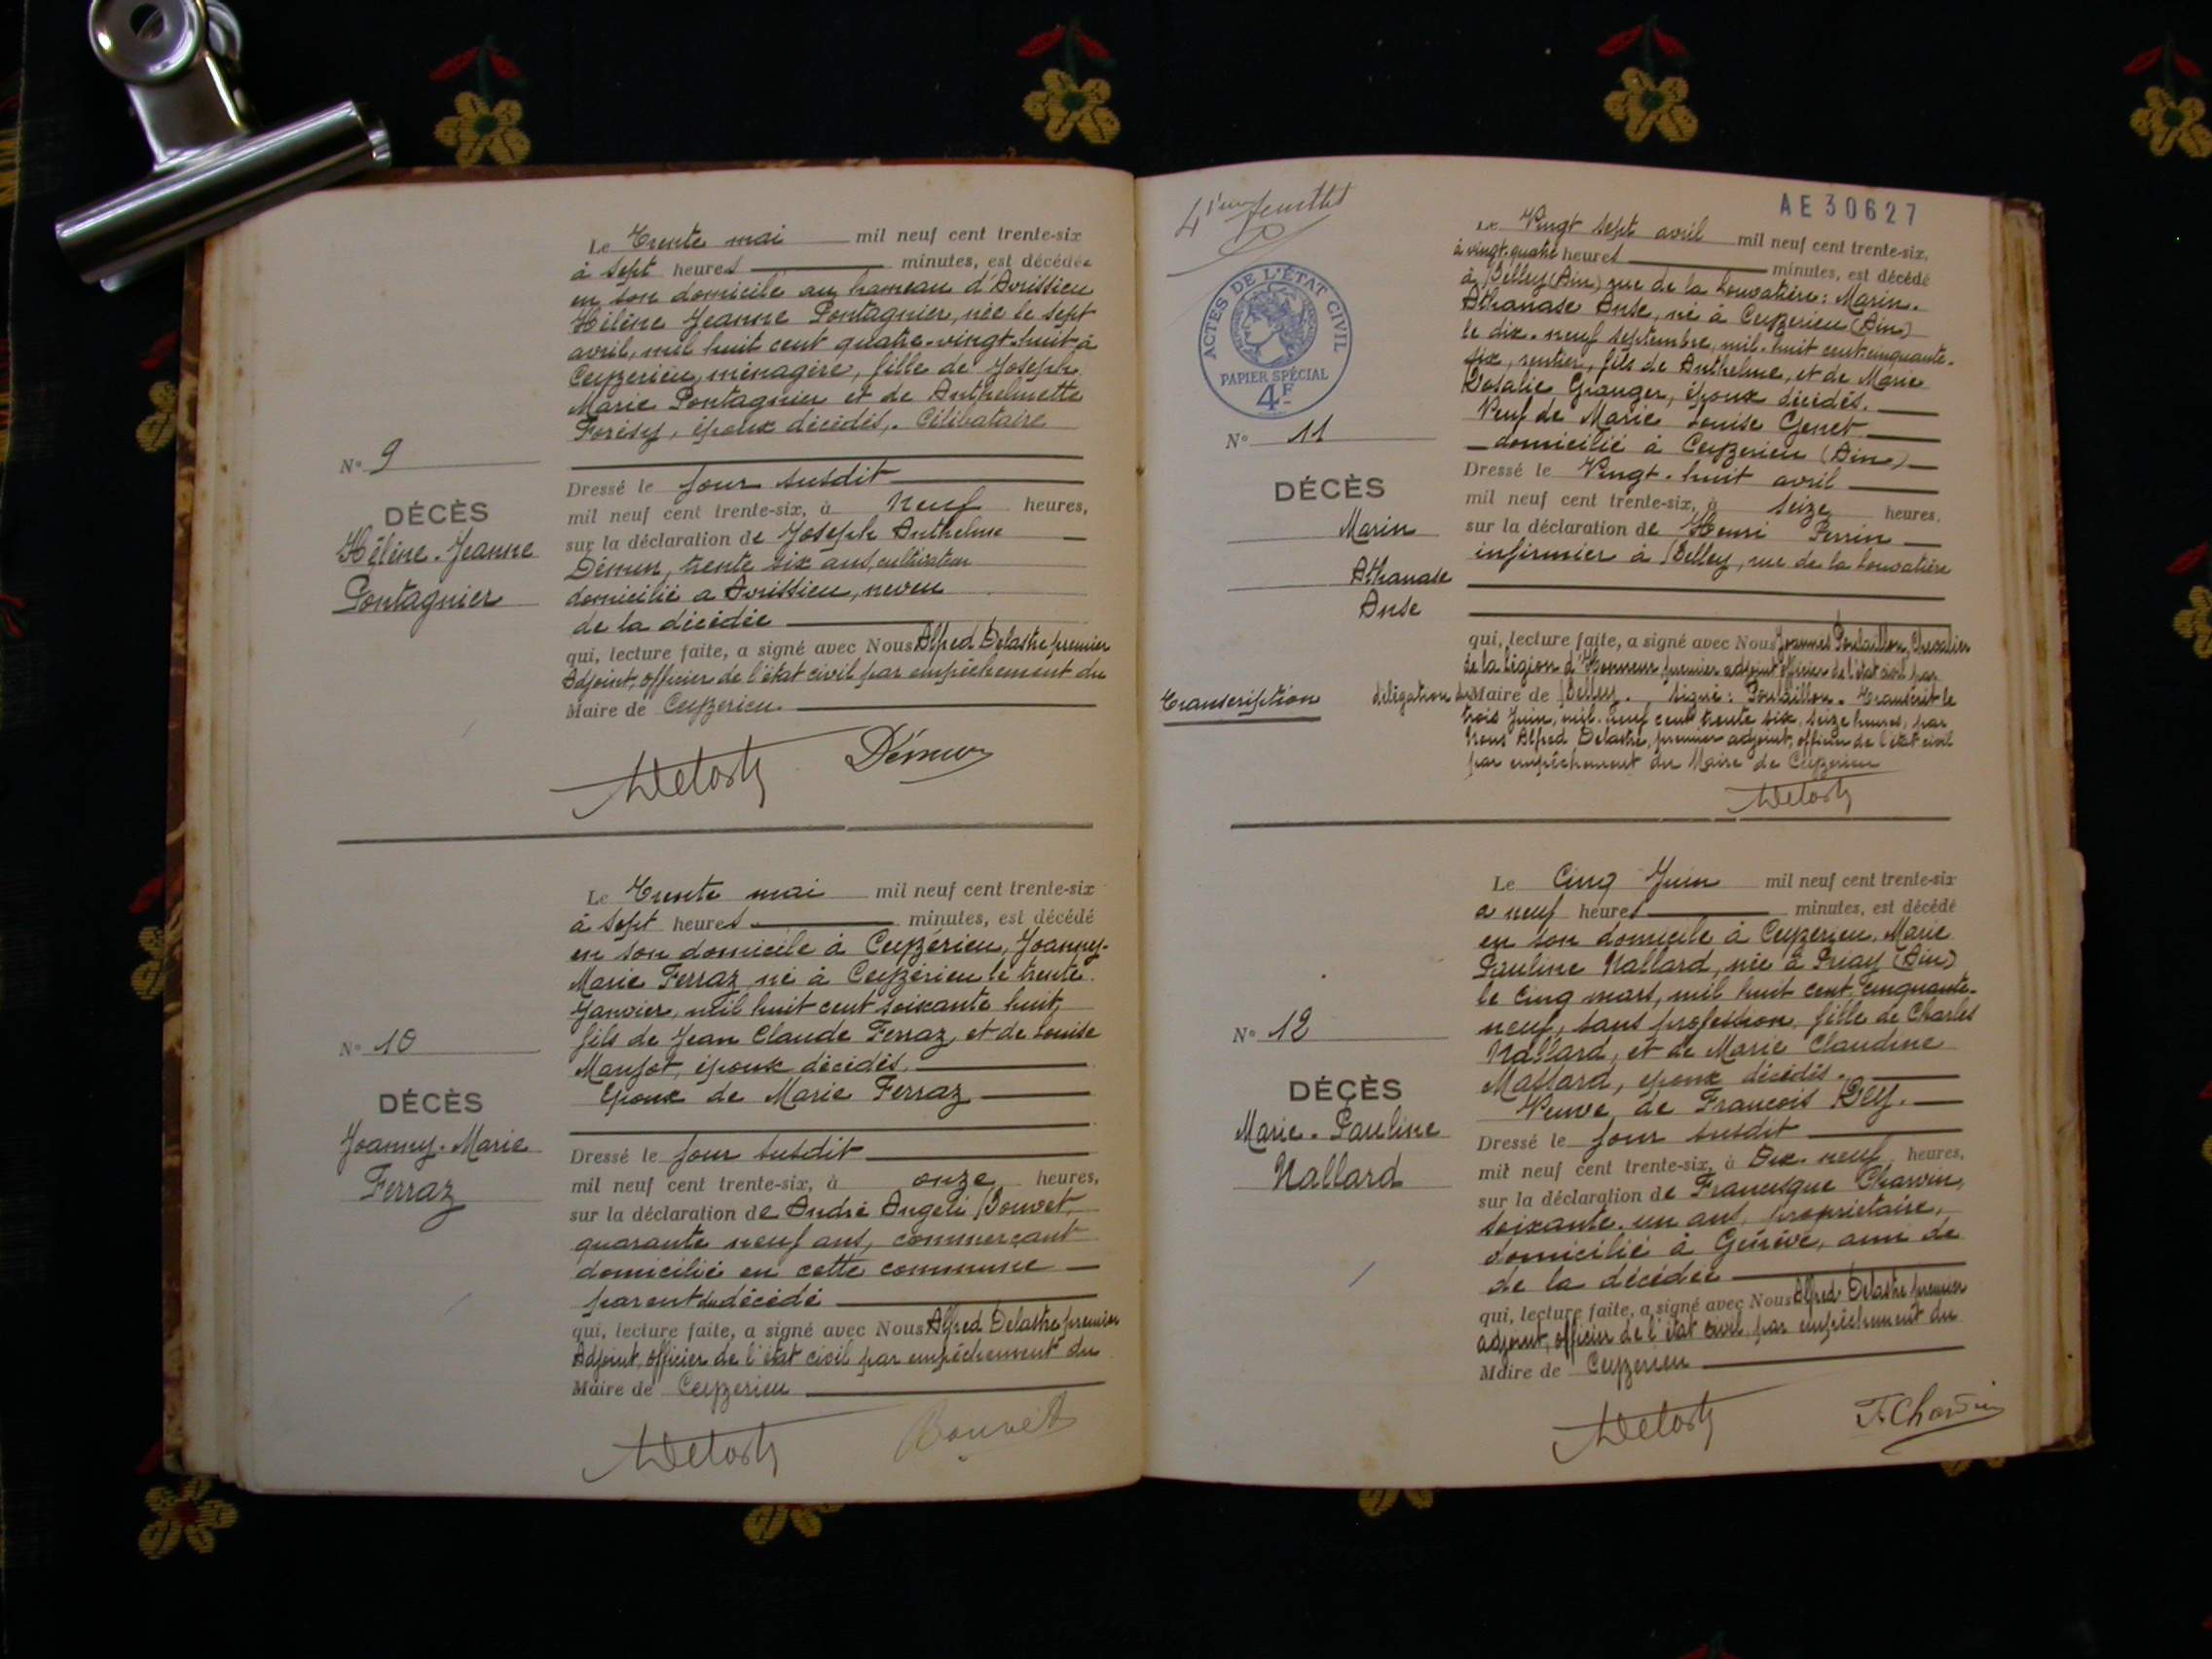 Le Trente mai mil neuf cent trente-six
à sept heures minutes, est décédée
en son domicile au hameau d'Avrissieu
Hélène Jeanne Pontagnier, née le sept
avril, mil huit cent quatre-vingt-huit à
Ceyzerieu, ménagère, fille de Joseph
Marie Pontagnier et de Anthelmette
Forésy, époux décédés. Célibataire
N° 9
DÉCÈS
Hélène-Jeanne
Pontagnier
Dressé le jour susdit
mil neuf cent trente-six, à neuf heures,
sur la déclaration de Joseph Anthelme
Démur, trente six ans, cultivateur
domicilié a Avrissieu, neveu
de la décédée
qui, lecture faite, a signé avec Nous Alfred Delastre premier
Adjoint, officier de l'état civil par empêchement du
Maire de Ceyzerieu.
Démur
Le Trente mai mil neuf cent trente-six
à sept heures minutes, est décédé
en son domicile à Ceyzérieu, Joanny-
Marie Ferraz, né à Ceyzérieu le trente
Janvier, mil huit cent soixante huit,
fils de Jean Claude Ferraz, et de Louise
époux décédés.
Epoux de Marie Ferraz
N° 10
DÉCÈS
Joanny-Marie
Ferraz
Dressé le jour susdit
mil neuf cent trente-six, à onze heures,
sur la déclaration de André Angeli Bouvet,
quarante neuf ans, commerçant
domicilié en cette commune
parent du décédé
qui, lecture faite, a signé avec Nous Alfred Delastre premier
Adjoint, officier de l'état civil par empêchement du
Maire de Ceyzerieu
Bouvet
4ième feuillet
AE30627
ACTES DE L'ÉTAT CIVIL
PAPIER SPÉCIAL
4F
Le Vingt sept avril mil neuf cent trente-six,
à vingt-quatre heures minutes, est décédé
à Belley (Ain) rue de la Louvatière: Marin-
Athanase Anse, né à Ceyzerieu (Ain)
le dix-neuf septembre, mil-huit cent cinquante-
six, rentier, fils de Anthelme, et de Marie
Rosalie Granger, époux décédés.
Veuf de Marie Louise Genet
domicilié à Ceyzerieu (Ain)
N° 11
DÉCÈS
Marin
Athanase
Anse
Dressé le Vingt-huit avril
mil neuf cent trente-six, à seize heures,
sur la déclaration de Henri Perrin
infirmier à Belley, rue de la Louvatière
qui, lecture faite, a signé avec Nous Joannès Pontaillon, Chevalier
de la Légion d'Honneur premier adjoint officier de l'état civil par
Transcription
délégation du Maire de Belley. Signé: Pontaillon. Transcrit le
trois Juin, mil-neuf cent trente six, seize heures, par
Nous Alfred Delastre, premier adjoint, officier de l'état civil
par empêchement du Maire de Ceyzerieu
Le Cinq Juin mil neuf cent trente-six
a neuf heures minutes, est décédé
en son domicile à Ceyzerieu, Marie
Pauline Nallard, née à Priay (Ain)
le cinq mars, mil huit cent cinquante-
neuf, sans profession, fille de Charles
Nallard, et de Marie Claudine
Mallard, époux décédés.
Veuve de François Rey.
N° 12
DÉCÈS
Marie-Pauline
Nallard
Dressé le jour susdit
mil neuf cent trente-six, à Dix-neuf heures,
sur la déclaration de Francisque Charvin,
soixante-un ans, propriétaire,
domicilié à Genève, ami de
de la décédée
qui, lecture faite, a signé avec Nous Alfred Delastre premier
adjoint, officier de l'état civil par empêchement du
Maire de Ceyzerieu
F. Charvin